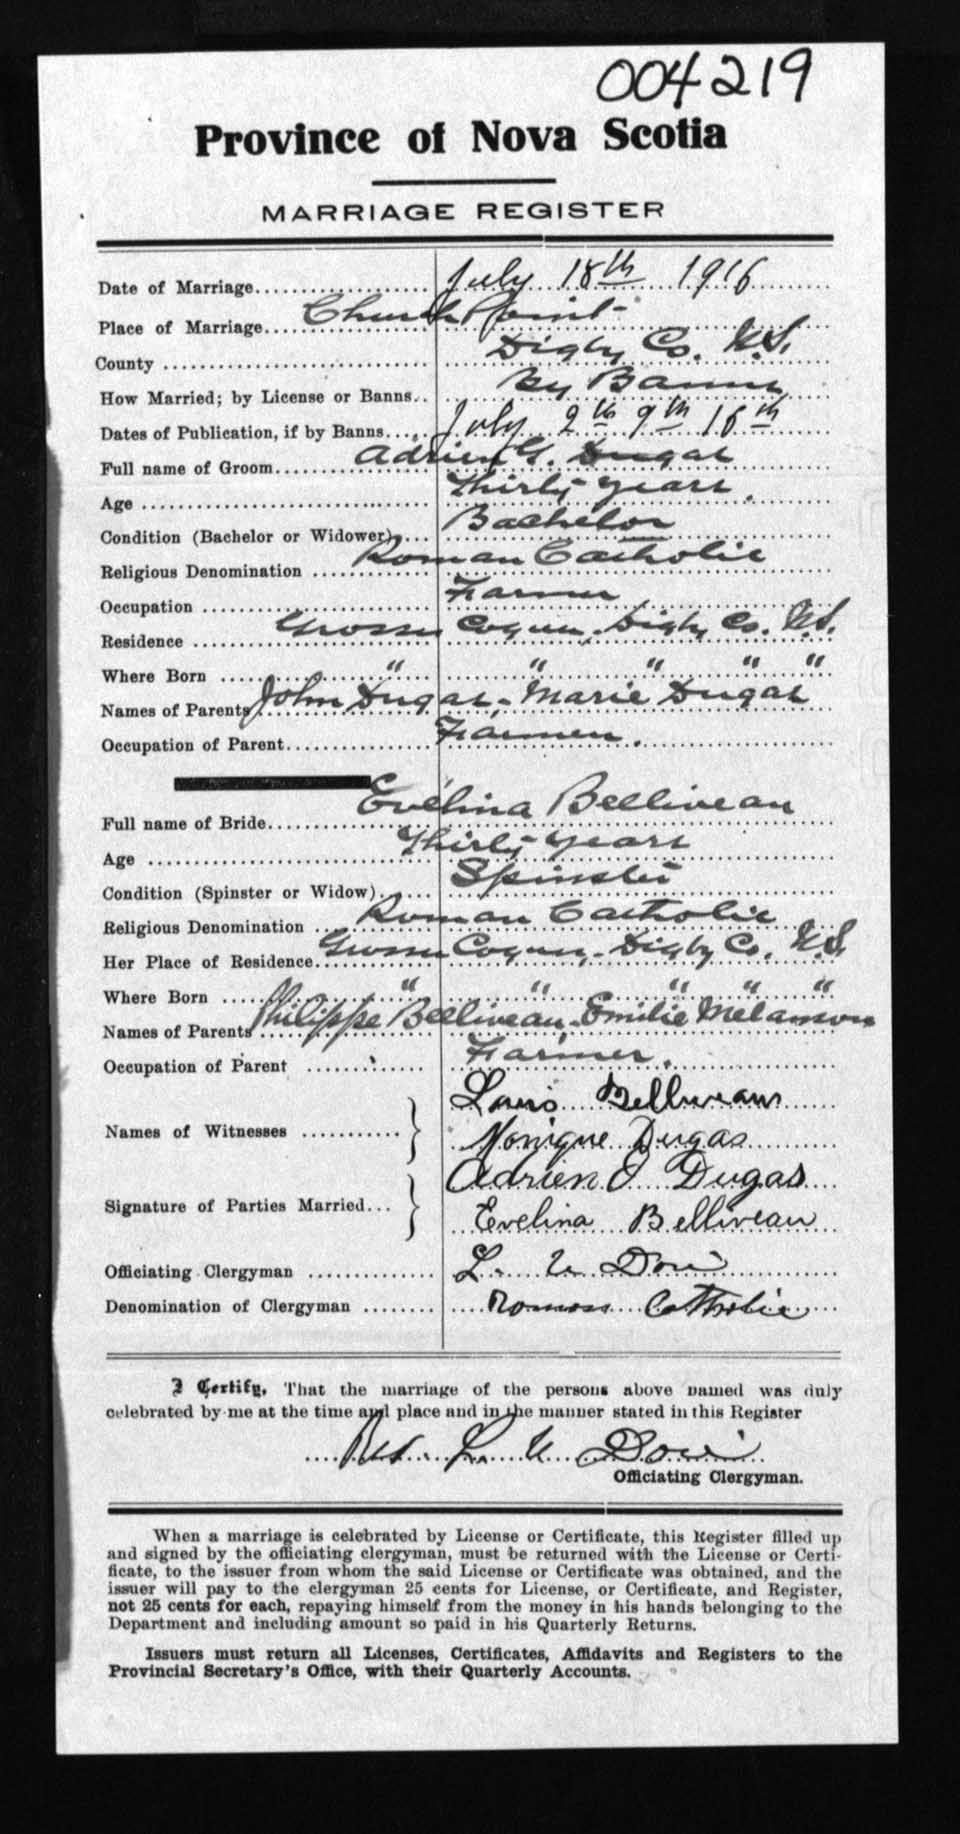 004219
Province of Nova Scotia
MARRIAGE REGISTER
Date of Marriage July 18th 1916
Place of Marriage Church Point
County Digby Co. N.S.
How Married; by License or Banns by Banns
Dates of Publication, if by Banns July 2th 9th 16th
Full name of Groom Adrien G. Dugas
Age Thirty years.
Condition (Bachelor or Widower) Bachelor
Religious Denomination Roman Catholic
Occupation Farmer
Residence Grosses Coques, Digby Co. N.S.
Where Born " " " " "
Names of Parents John Dugas, Marie Dugas
Occupation of Parent Farmer.
Full name of Bride Evélina Belliveau
Age Thirty years
Condition (Spinster or Widow) Spinster
Religious Denomination Roman Catholic
Her Place of Residence Grosses Coques, Digby Co. N.S.
Where Born " " " " "
Names of Parents Philippe Belliveau, Emilie Melanson
Occupation of Parent Farmer.
Louis Belliveau
Names of Witnesses
Monique Dugas
Adrien J Dugas
Signature of Parties Married
Evelina Belliveau
Officiating Clergyman L.
Denomination of Clergyman Roman Catholic
I Certify, That the marriage of the persons above named was duly
celebrated by me at the time and place and in the manner stated in this Register
Rev. L.
Officiating Clergyman.
When a marriage is celebrated by License or Certificate, this Register filled up
and signed by the officiating clergyman, must be returned with the License or Certi-
ficate, to the issuer from whom the said License or Certificate was obtained, and the
issuer will pay to the clergyman 25 cents for License, or Certificate, and Register,
not 25 cents for each, repaying himself from the money in his hands belonging to the
Department and including amount so paid in his Quarterly Returns.
Issuers must return all Licenses, Certificates, Affidavits and Registers to the
Provincial Secretary's Office, with their Quarterly Accounts.